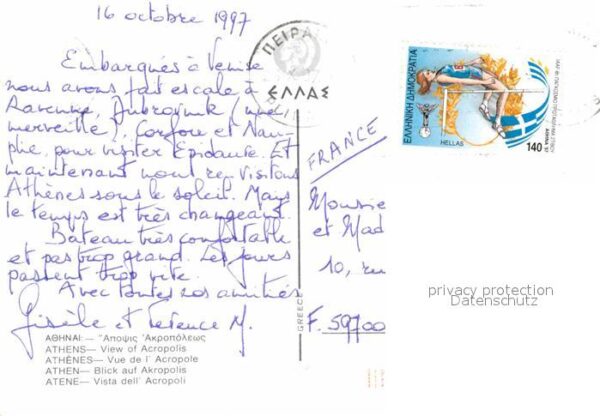 16 octobre 1997
Embarqués à Venise
nous avons fait escale à
Ravenne, Dubrovnik (une
merveille), Corfou et Nau-
plie, pour visiter Epidaure. Et
maintenant nous revisitons
Athènes sous le soleil. Mais
le temps est très changeant.
Bateau très confortable
et pas trop grand. Les jours
passent trop vite.
Avec toutes nos amitiés
Gisèle et Terence M.
ΑΘΗΝΑΙ — "Αποψις 'Ακροπόλεως
ATHENS — View of Acropolis
ATHÈNES — Vue de l' Acropole
ATHEN — Blick auf Akropolis
ATENE — Vista dell' Acropoli
GREECE
ΠΕΙΡΑ
ΕΛΛΑΣ
ΕΛΛΗΝΙΚΗ ΔΗΜΟΚΡΑΤΙΑ
HELLAS
140
FRANCE
Monsie
et Mad
10, ru
F. 59700
privacy protection
Datenschutz